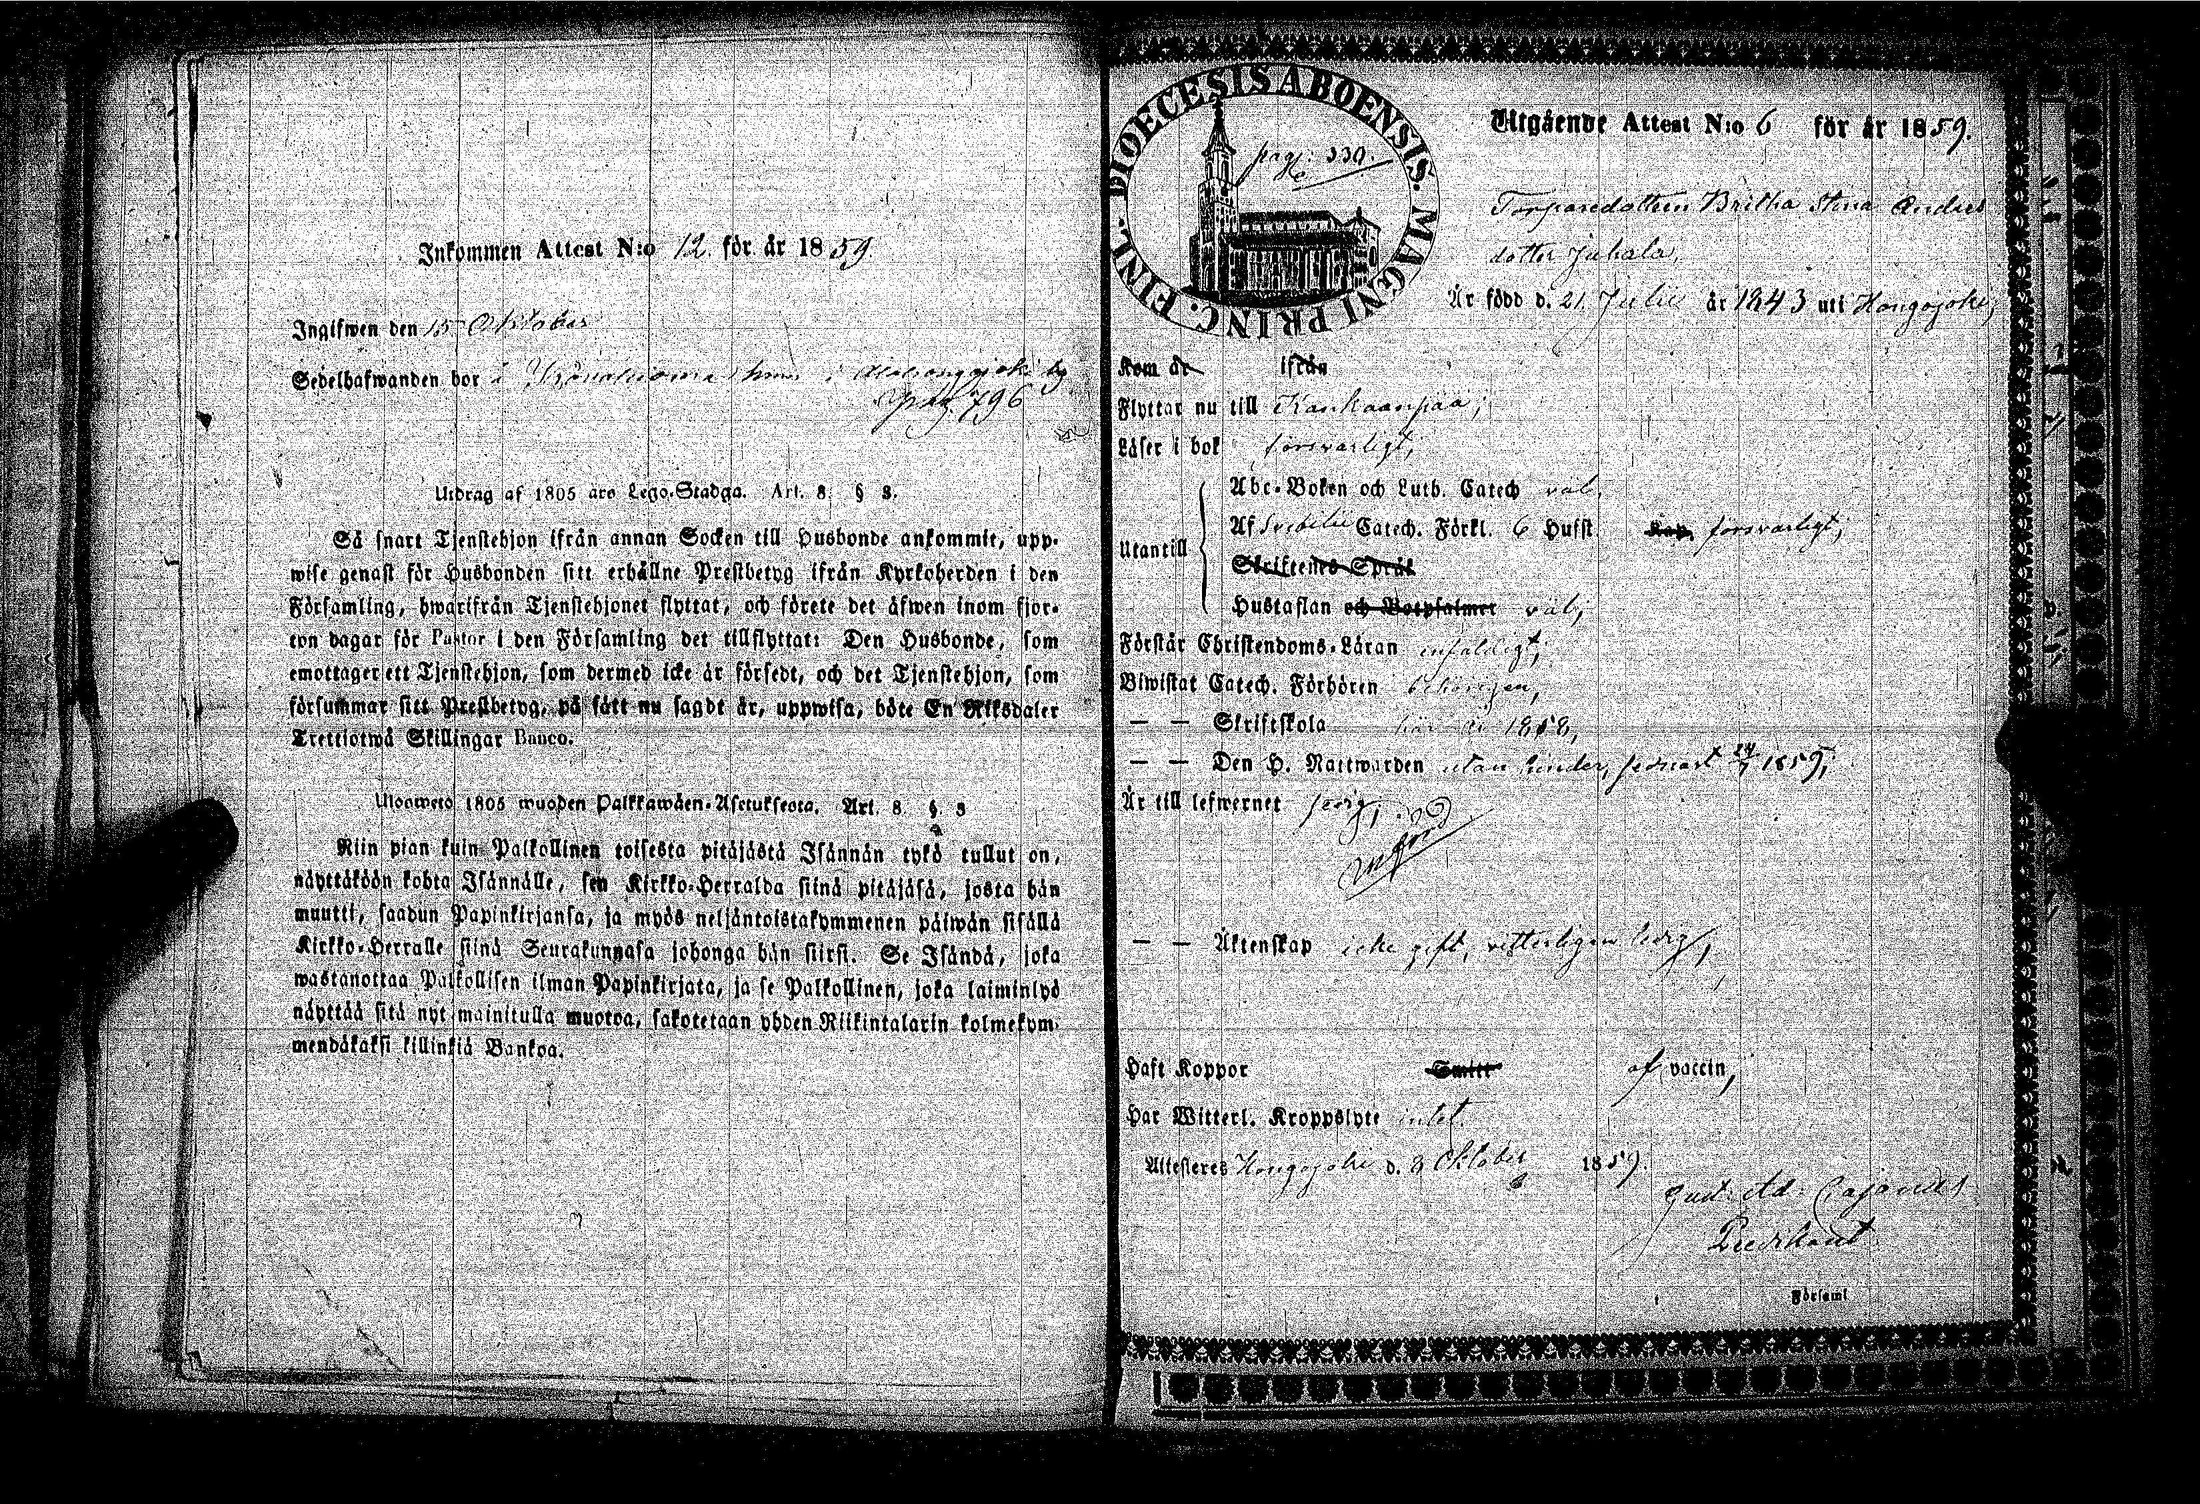 Inkommen Attest N:o 12. för år 1859.
Ingifwen den 15 Oktober
Sedelhafwanden bor i i by
pag. 796
Utdrag af 1805 års Lego-Stadga. Art. 8. § 8.
Så snart Tjenstehjon ifrån annan Socken till Husbonde ankommit, upp-
wise genast för Husbonden sitt erhållne Prestbetyg ifrån Kyrkoherden i den
Församling, hwarifrån Tjenstehjonet flyttat, och förete det äfwen inom fjor-
ton dagar för Pastor i den Församling det tillflyttat: Den Husbonde, som
emottager ett Tjenstehjon, som dermed icke är försedt, och det Tjenstehjon, som
försummar sitt Prestbetyg, på sätt nu sagdt är, uppwisa, böte En Riksdaler
Trettiotwå Skillingar Banco.
Ulosweto 1805 wuoden Palkkawäen-Asetuksesta. Art. 8 §. 8
Niin pian kuin Palkollinen toisesta pitäjästä Isännän tykö tullut on,
näyttäköön kohta Isännälle, sen Kirkko-Herralda siinä pitäjäsä, josta hän
muutti, saadun Papinkirjansa, ja myös neljäntoistakymmenen päiwän sisällä
Kirkko-Herralle siinä Seurakunnasa johonga hän siirsi. Se Isändä, joka
wastanottaa Palkollisen ilman Papinkirjata, ja se Palkollinen, joka laiminlyö
näyttää sitä nyt mainitulla muotoa, sakotetaan yhden Riikintalarin kolmekym-
mendäkaksi killinkiä Bankoa.
DIOECESIS ABOENSIS. MAGNI PRINC. FINL.
pag: 330.
Utgående Attest N:o 6 för år 1859.
Torparedottern Britha Stina Anders
dotter Juhala,
Är född d. 21 Julii år 1843 uti Hongojoki,
Kom år ifrån
Flyttar nu till Kankaanpää,
Läser i bok försvarligt,
Utantill
Abc-Boken och Luth. Catech väl,
Af Svebilii Catech. Förkl. 6 Hufst. Kap. försvarligt,
Skriftenes Språk
Hustaflan och Botpsalmer väl,
Förstår Christendoms-Läran enfaldigt,
Biwistat Catech. Förhören behörigen,
— — Skriftskola här år 1858,
— — Den H. Nattwarden utan hinder, sednast 24/7 1859,
Är till lefwernet frejd,
— — Äktenskap icke gift, vitterligen ledig,
Haft Koppor Smitt af vaccin,
Har Witterl. Kroppslyte intet.
Attesteres Hongojoki d. 8 Oktober 1859.
Gust. Ad. Cajanus
Predikant
Församl